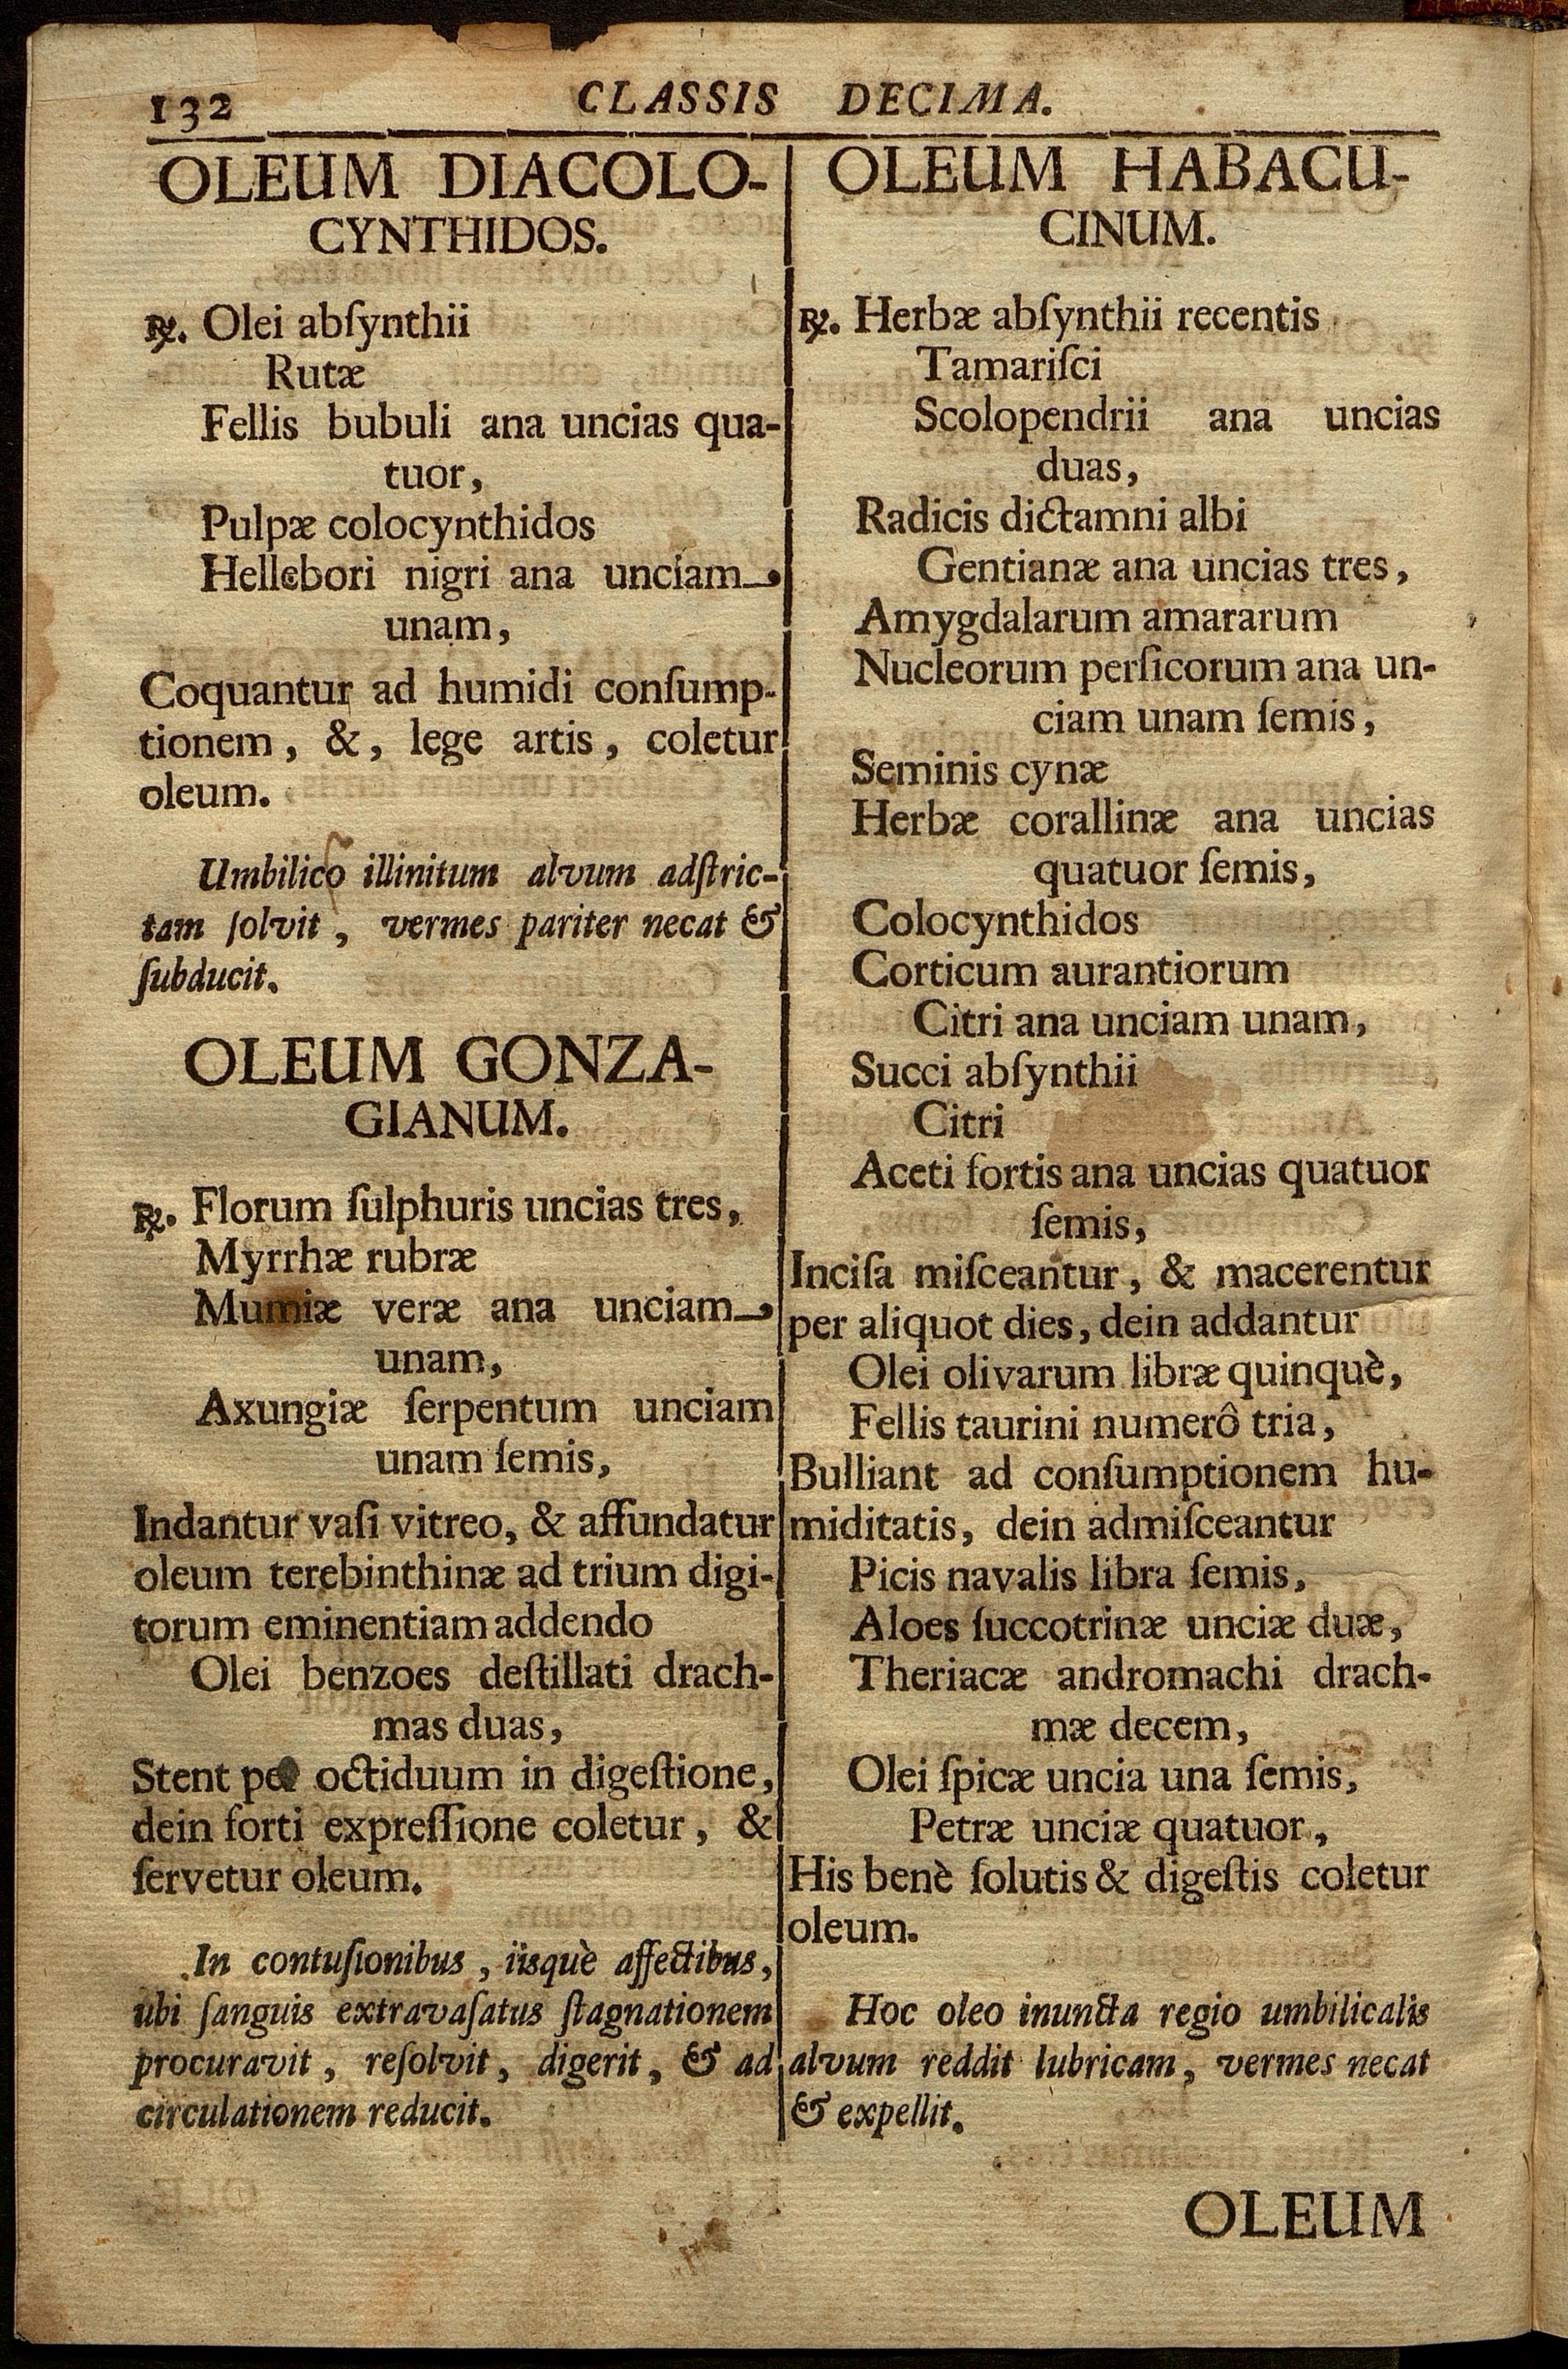 132 CLASSIS DECIMA.
OLEUM DIACOLO-
CYNTHIDOS.
℞. Olei abſynthii
Rutæ
Fellis bubuli ana uncias qua-
tuor,
Pulpæ colocynthidos
Hellebori nigri ana unciam
unam,
Coquantur ad humidi conſump-
tionem, &, lege artis, coletur
oleum.
Umbilico illinitum alvum adſtric-
tam ſolvit, vermes pariter necat &
ſubducit.
OLEUM GONZA-
GIANUM.
℞. Florum ſulphuris uncias tres,
Myrrhæ rubræ
Mumiæ veræ ana unciam
unam,
Axungiæ ſerpentum unciam
unam ſemis,
Indantur vaſi vitreo, & affundatur
oleum terebinthinæ ad trium digi-
torum eminentiam addendo
Olei benzoes deſtillati drach-
mas duas,
Stent per octiduum in digeſtione,
dein forti expreſſione coletur, &
ſervetur oleum.
In contuſionibus, iisquè affectibus,
ubi ſanguis extravaſatus ſtagnationem
procuravit, reſolvit, digerit, & ad
circulationem reducit.
OLEUM HABACU-
CINUM.
℞. Herbæ abſynthii recentis
Tamariſci
Scolopendrii ana uncias
duas,
Radicis dictamni albi
Gentianæ ana uncias tres,
Amygdalarum amararum
Nucleorum perſicorum ana un-
ciam unam ſemis,
Seminis cynæ
Herbæ corallinæ ana uncias
quatuor ſemis,
Colocynthidos
Corticum aurantiorum
Citri ana unciam unam,
Succi abſynthii
Citri
Aceti fortis ana uncias quatuor
ſemis,
Inciſa miſceantur, & macerentur
per aliquot dies, dein addantur
Olei olivarum libræ quinquè,
Fellis taurini numerô tria,
Bulliant ad conſumptionem hu-
miditatis, dein admiſceantur
Picis navalis libra ſemis,
Aloes ſuccotrinæ unciæ duæ,
Theriacæ andromachi drach-
mæ decem,
Olei ſpicæ uncia una ſemis,
Petræ unciæ quatuor,
His benè ſolutis & digeſtis coletur
oleum.
Hoc oleo inuncta regio umbilicalis
alvum reddit lubricam, vermes necat
& expellit.
OLEUM